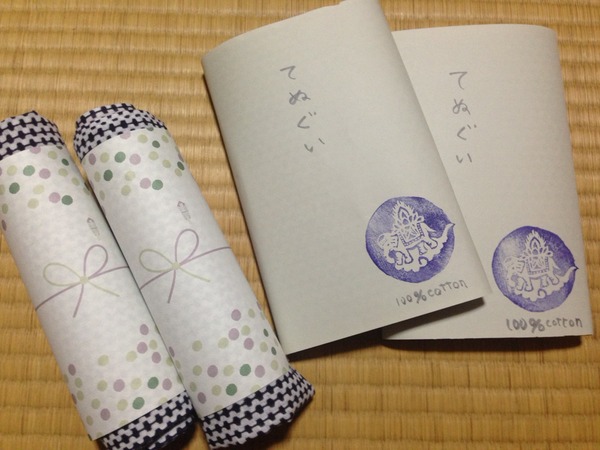 てぬぐい
100% cotton
てぬぐい
100% cotton